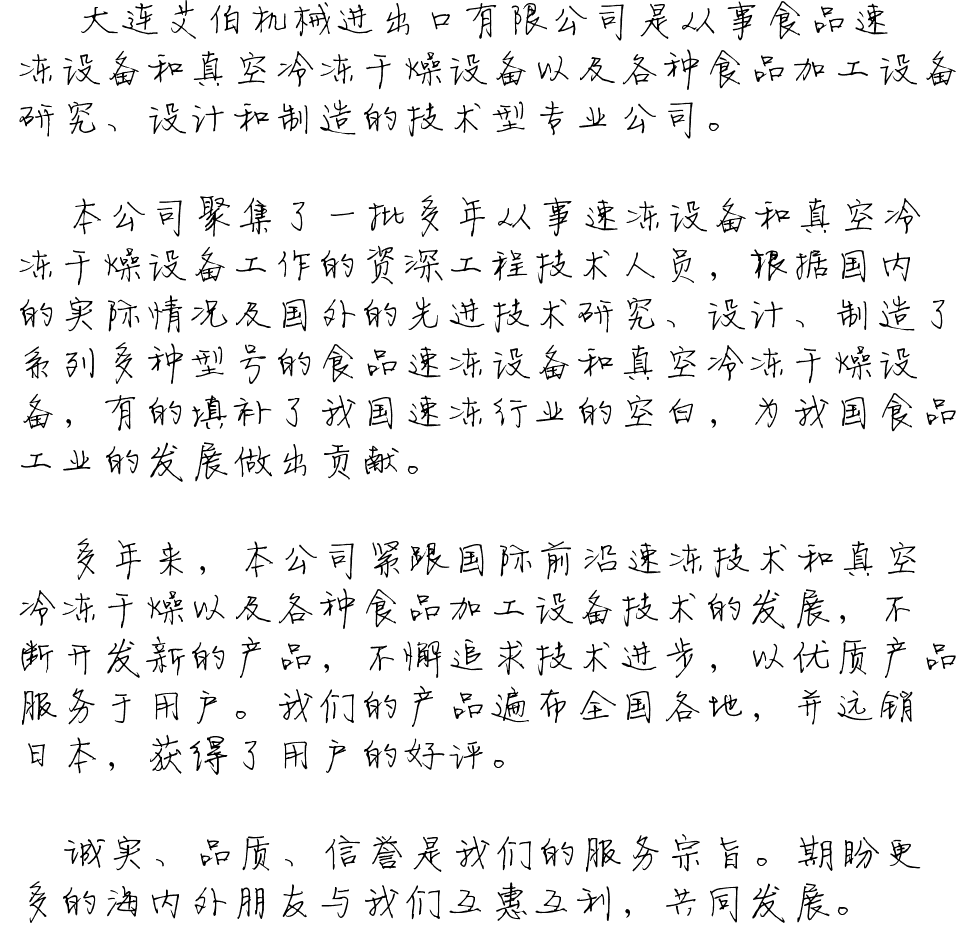 大连艾伯机械进出口有限公司是从事食品速
冻设备和真空冷冻干燥设备以及各种食品加工设备
研究、设计和制造的技术型专业公司。
本公司聚集了一批多年从事速冻设备和真空冷
冻干燥设备工作的资深工程技术人员，根据国内
的实际情况及国外的先进技术研究、设计、制造了
系列多种型号的食品速冻设备和真空冷冻干燥设
备，有的填补了我国速冻行业的空白，为我国食品
工业的发展做出贡献。
多年来，本公司紧跟国际前沿速冻技术和真空
冷冻干燥以及各种食品加工设备技术的发展，不
断开发新的产品，不懈追求技术进步，以优质产品
服务于用户。我们的产品遍布全国各地，并远销
日本，获得了用户的好评。
诚实、品质、信誉是我们的服务宗旨。期盼更
多的海内外朋友与我们互惠互利，共同发展。